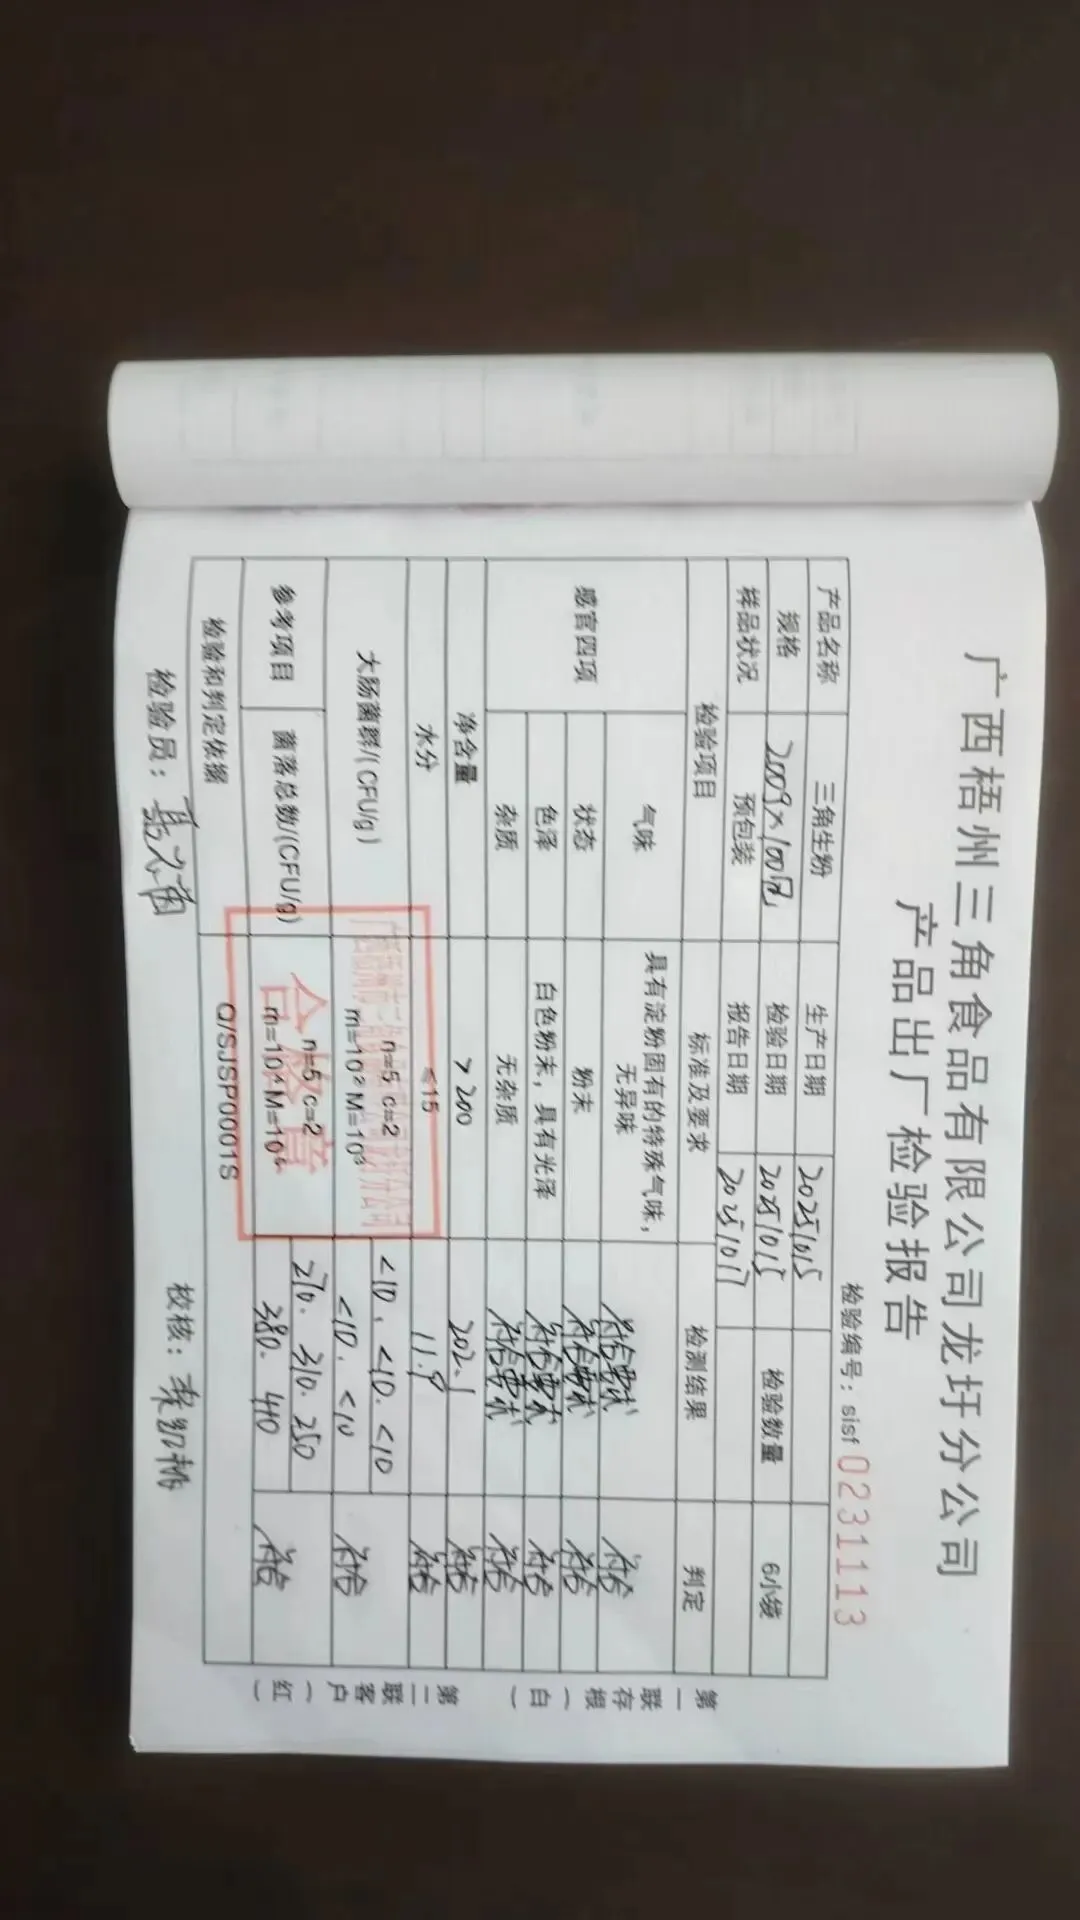 广西梧州三角食品有限公司龙圩分公司
产品出厂检验报告
检验编号：sisf 0231113
产品名称 三角生粉 生产日期 20251015
规格 200g×100包 检验日期 20251015 检验数量 6小袋
样品状况 预包装 报告日期 20251017
检验项目 标准及要求 检测结果 判定
感官四项 气味 具有淀粉固有的特殊气味，无异味 符合要求 符合
状态 粉末 符合要求 符合
色泽 白色粉末，具有光泽 符合要求 符合
杂质 无杂质 符合要求 符合
净含量 >200 202.1 符合
水分 ≤15 11.9 符合
大肠菌群/(CFU/g) n=5 c=2 <10、<10、<10
m=10² M=10³ <10、<10 符合
参考项目 菌落总数/(CFU/g) n=5 c=2 270、310、250
m=10⁴ M=10⁵ 380、410 符合
检验和判定依据 Q/SJSP0001S
合格章
检验员： 校核：
第一联存根（白） 第二联客户（红）